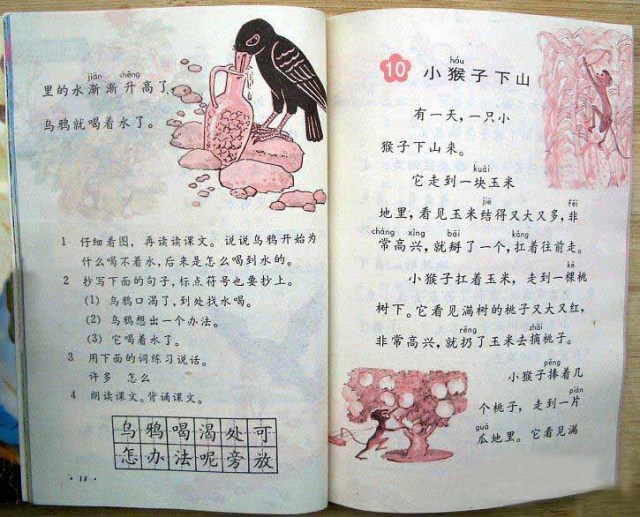 jiàn shēng
里的水渐渐升高了，
乌鸦就喝着水了。
1 仔细看图，再读读课文。说说乌鸦开始为
什么喝不着水，后来是怎么喝到水的。
2 抄写下面的句子，标点符号也要抄上。
(1) 乌鸦口渴了，到处找水喝。
(2) 乌鸦想出一个办法。
(3) 它喝着水了。
3 用下面的词练习说话。
许多 怎么
4 朗读课文。背诵课文。
乌鸦喝渴处可
怎办法呢旁放
· 18 ·
hóu
10 小猴子下山
有一天，一只小
猴子下山来。
kuài
它走到一块玉米
jiē fēi
地里，看见玉米结得又大又多，非
cháng xìng bāi káng
常高兴，就掰了一个，扛着往前走。
kē
小猴子扛着玉米，走到一棵桃
树下。它看见满树的桃子又大又红，
rēng zhāi
非常高兴，就扔了玉米去摘桃子。
pěng
小猴子捧着几
piàn
个桃子，走到一片
guā
瓜地里。它看见满